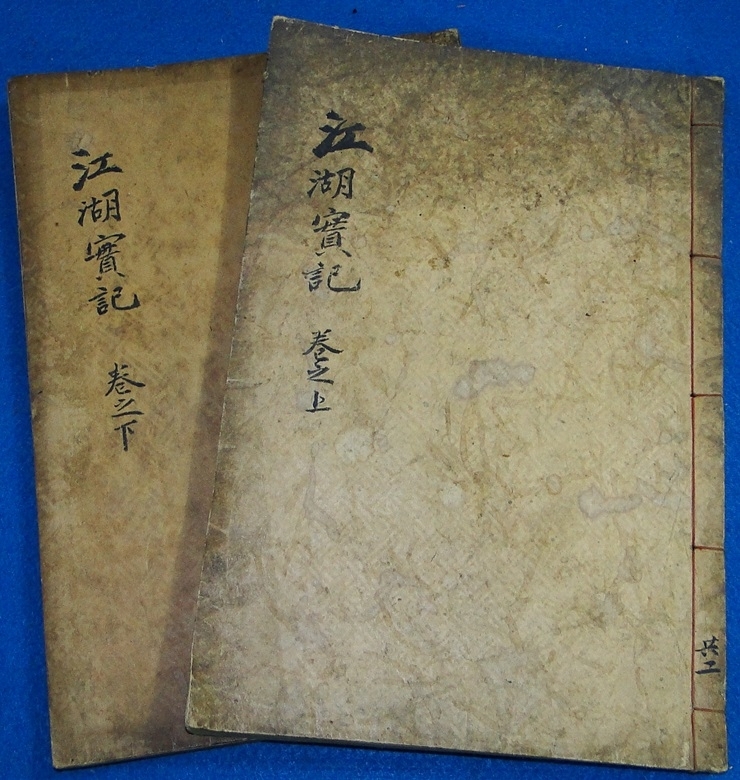 江湖實記 卷之上
共二
江湖實記 卷之下